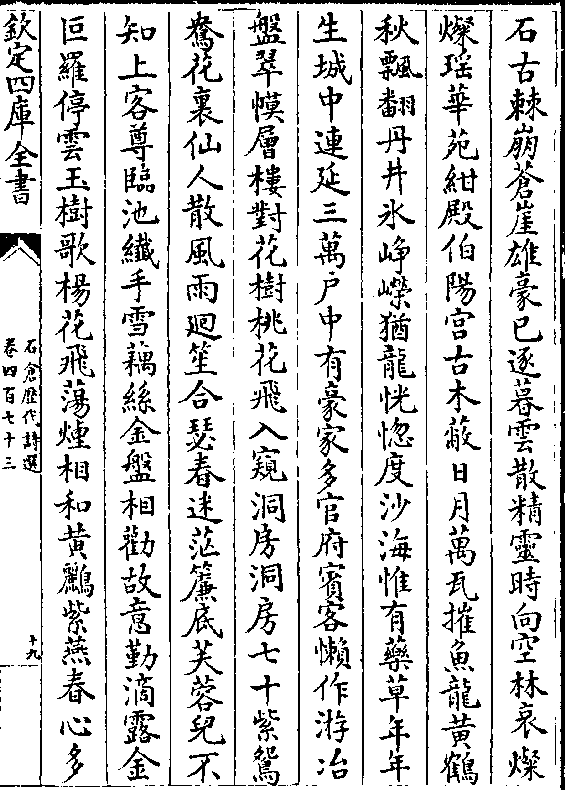 石古棘崩蒼崖雄豪已逐暮雲散精靈時向空林哀燦
燦瑶華苑紺殿伯陽宫古木蔽日月萬瓦摧魚龍黄鶴
秋飄翻丹井氷崢嶸猶龍恍惚度沙海惟有藥草年年
生城中連延三萬户中有豪家多官府賓客懶作游冶
盤翠幙層樓對花樹桃花飛入窺洞房洞房七十紫鴛
鴦花裏仙人散風雨廻笙合瑟春迷茫簾底芙蓉兒不
知上客尊臨池纖手雪藕絲金盤相勸故意勤滴露金
叵羅停雲玉樹歌楊花飛蕩煙相和黄鸝紫燕春心多
欽定四庫全書
石倉歷代詩選
卷四百七十三
十九